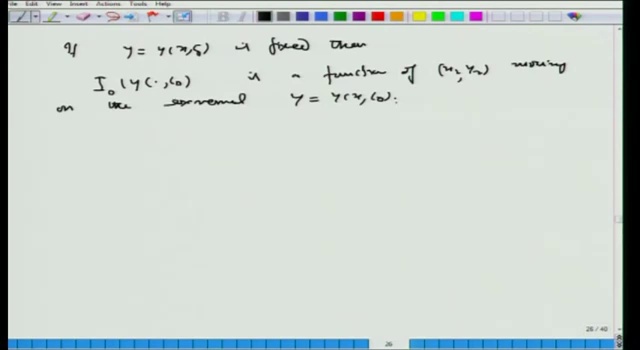 File Edit View Insert Actions Tools Help
If y = y(x, c₀) is fixed then
I₀(y(·, c₀) is a function of (x₂, y₂) moving
on the extremal y = y(x, c₀).
26 / 40
26